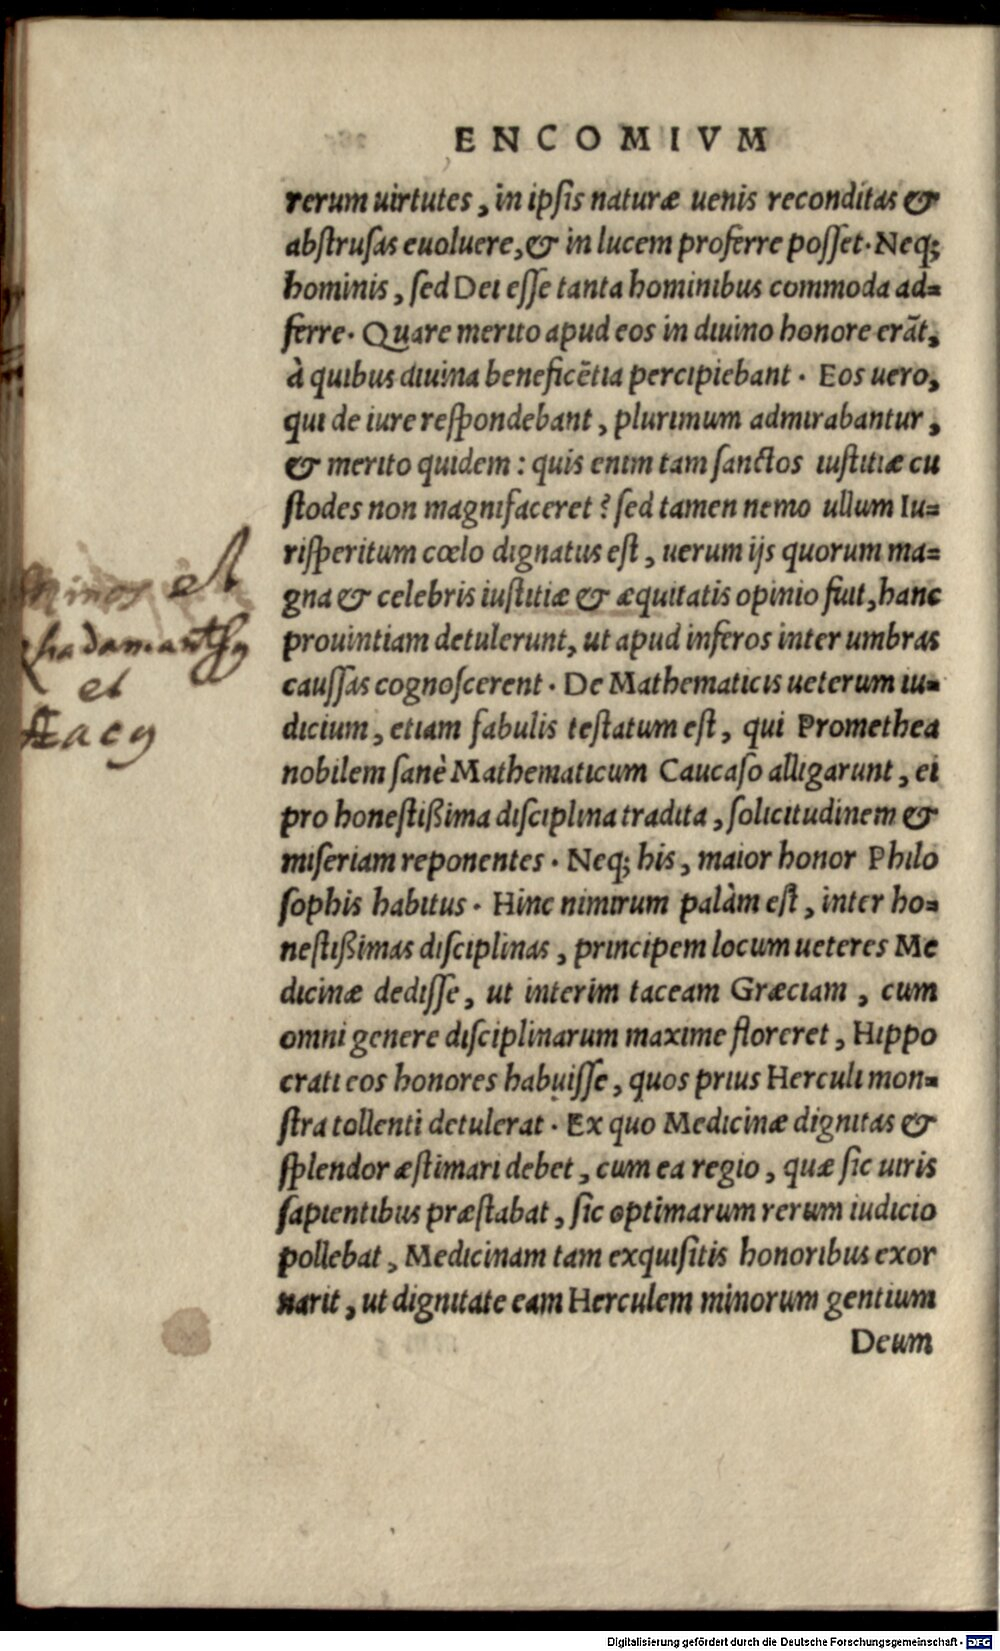 ENCOMIVM
rerum uirtutes, in ipsis naturæ uenis reconditas &
abstrusas euoluere, & in lucem proferre posset. Neq;
hominis, sed Dei esse tanta hominibus commoda ad=
ferre. Quare merito apud eos in diuino honore erãt,
à quibus diuina beneficẽtia percipiebant. Eos uero,
qui de iure respondebant, plurimum admirabantur,
& merito quidem: quis enim tam sanctos iustitiæ cu
stodes non magnifaceret? sed tamen nemo ullum Iu=
risperitum cœlo dignatus est, uerum ijs quorum ma=
gna & celebris iustitiæ & æquitatis opinio fuit, hanc
prouintiam detulerunt, ut apud inferos inter umbras
caussas cognoscerent. De Mathematicis ueterum iu=
dicium, etiam fabulis testatum est, qui Promethea
nobilem sanè Mathematicum Caucaso alligarunt, ei
pro honestißima disciplina tradita, solicitudinem &
miseriam reponentes. Neq; his, maior honor Philo
sophis habitus. Hinc nimirum palàm est, inter ho=
nestißimas disciplinas, principem locum ueteres Me
dicinæ dedisse, ut interim taceam Græciam, cum
omni genere disciplinarum maxime floreret, Hippo
crati eos honores habuisse, quos prius Herculi mon=
stra tollenti detulerat. Ex quo Medicinæ dignitas &
splendor æstimari debet, cum ea regio, quæ sic uiris
sapientibus præstabat, sic optimarum rerum iudicio
pollebat, Medicinam tam exquisitis honoribus exor
narit, ut dignitate eam Herculem minorum gentium
Deum
Minos et
Rhadamanthꝰ
et
Æacꝰ
Digitalisierung gefördert durch die Deutsche Forschungsgemeinschaft - DFG